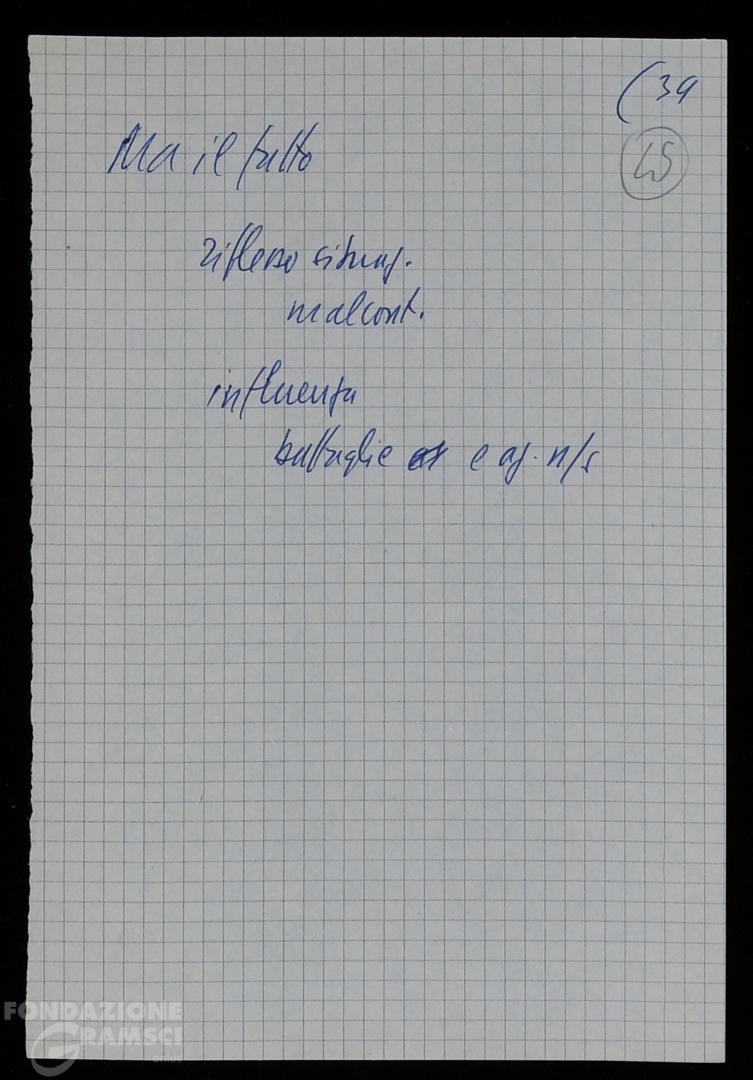 (39
45
Ma il tutto
riflesso situaz.
malcont.
influenza
battaglie e az. n/s
FONDAZIONE
GRAMSCI
onlus